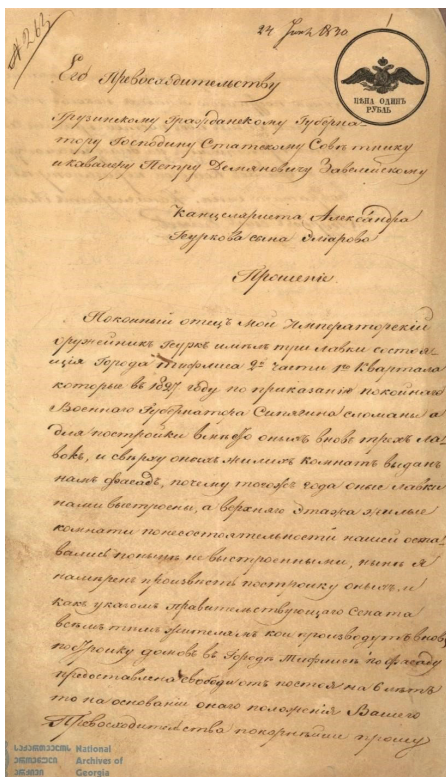 № 263
24 Июня 1830
ЦѢНА ОДИНЪ
РУБЛЬ
Его Превосходительству
Грузинскому Гражданскому Губерна
тору Господину Статскому Совѣтнику
и кавалеру Петру Демяновичу Завелискому
Канцеляриста Александра
сына
Прошеніе
Покойный отецъ мой Императорскій
оружейникъ имѣлъ три лавки состоя
щія Города Тифлиса 2й части 1го Квартала
которые въ 1827 году по приказанія покойнаго
Военнаго Губернатора Сипягина сломаны а
для постройки вновь трехъ ла
вокъ, и сверху оныхъ жилихъ комнатъ выданъ
намъ фасадъ, почему тогожъ года оные лавки
нами выстроены, а верхняго этажа жилые
комнати понесостоятельности нашей оста
вались понынѣ не выстроенными, нынѣ я
намѣренъ произвѣсть постройку оныхъ, и
какъ указомъ Правительствующаго Сената
всѣмъ тѣмъ жителямъ кои производутъ вновь
постройку домовъ въ Городѣ Тифлисѣ по фасаду
предоставлена свобода отъ постоя на 6 лѣтъ
то на основаніи онаго положенія Вашего
Превосходительства покорнѣйше прошу
საქართველოს National
ეროვნული Archives of
არქივი Georgia